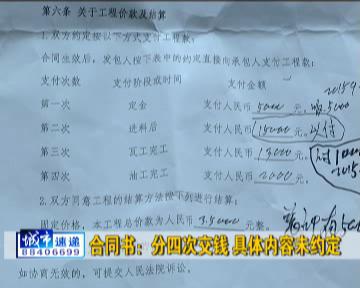 第六条 关于工程价款及结算
1.双方约定按以下方式支付工程款:
合同生效后,发包人按下表中的约定直接向承包人支付工程款:
支付次数 支付阶段或时间 支付金额
第一次 定金 支付人民币 5000 元。
第二次 进料后 支付人民币 15000 元。以付
第三次 瓦工完工 支付人民币 13000 元。
第四次 油工完工 支付人民币 2000 元。
2.双方同意工程的结算方法按下列进行结算:
固定价格,本工程总价款为人民币 35000 元整。
城市速递
88406699
合同书:分四次交钱 具体内容未约定
如协商无效的,可提交人民法院诉讼。